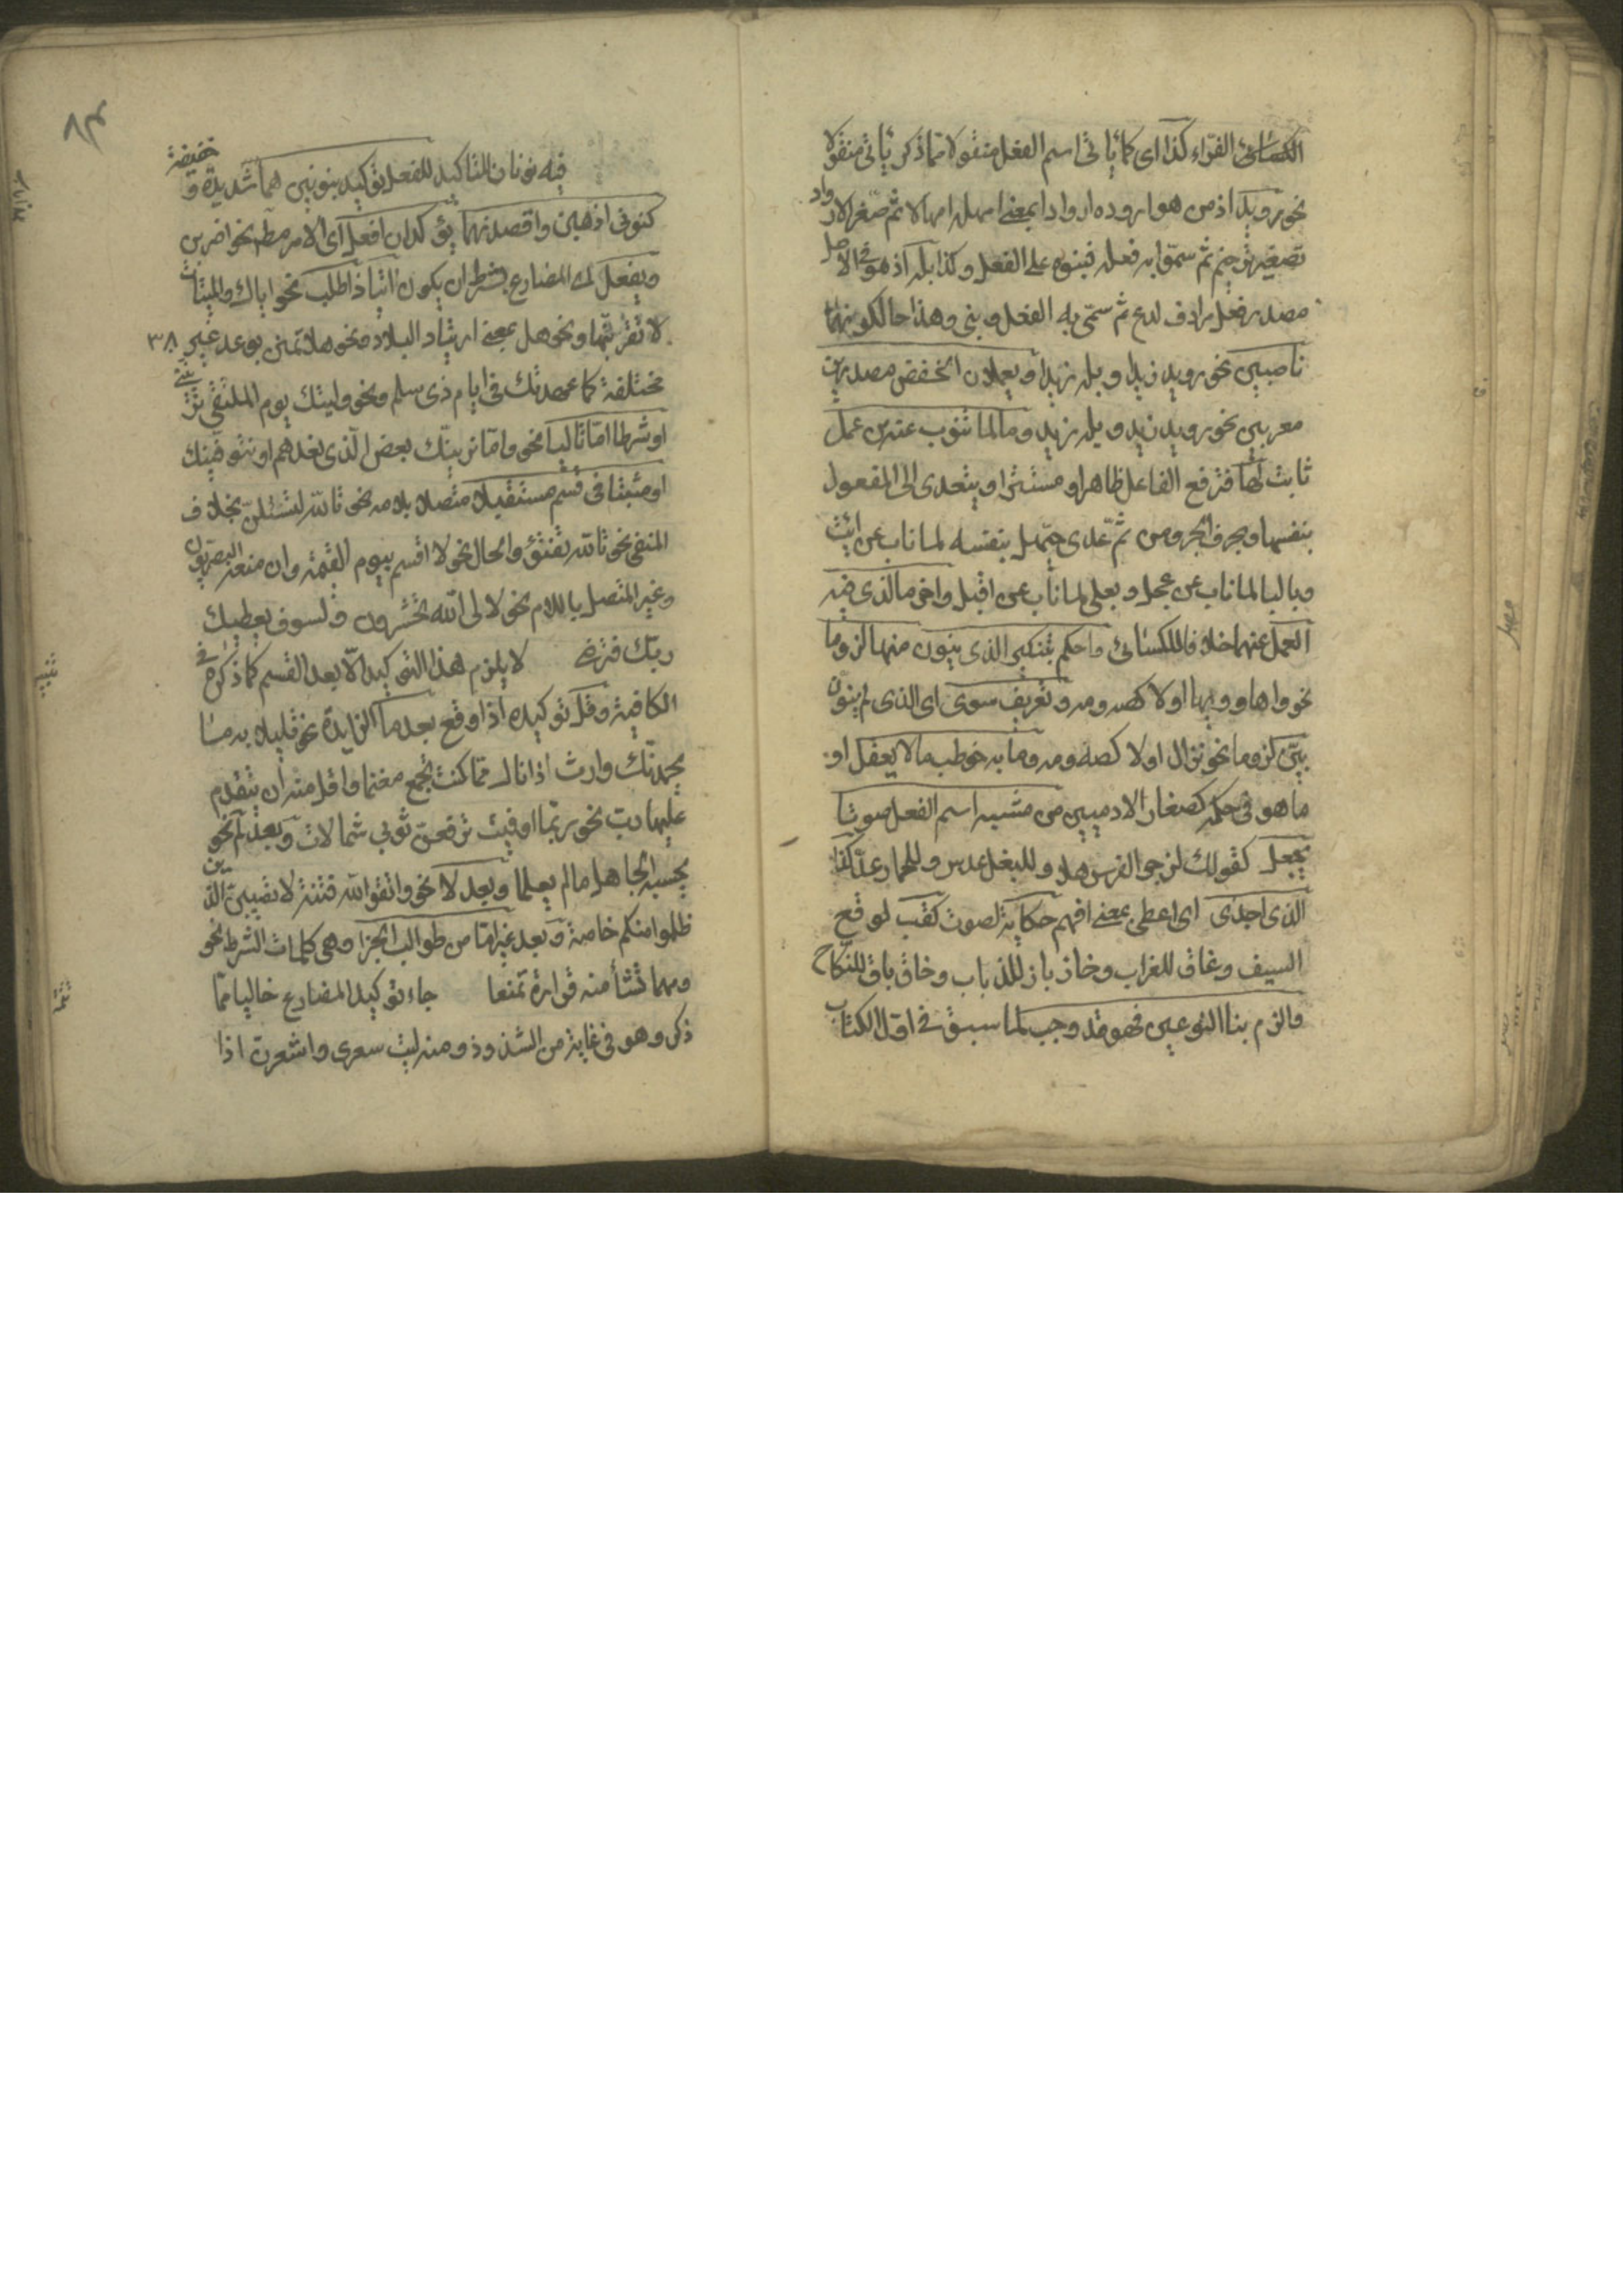 الكسائي الفرّاء كذا اى كما ياتى اسم الفعل منقولا مما ذكر ياتى منقولا
نحو رويد اذ من هو اروده اروادا بمعنى امهله امهالا ثم صغر الارواد
تصغير ترخيم ثم سمّوا به فعله فبنوه على الفعل وكذا بله اذ هو فى الاصل
مصدر فعل مرادف لدع ثم سمّى به الفعل وبنى وهذا حالكونهما
ناصبين نحو رويد زيدا وبله زيدا ويعملان الخفض مصدرين
معربين نحو رويد زيد وبله زيد وما لما تنوب عنه من عمل
ثابت لها فترفع الفاعل ظاهرا ومستترا ويتعدى الى المفعول
بنفسها وبحرف الجر ومن ثم عدى حيّهل بنفسه لما ناب عن ائت
وبالبا لما ناب عن عجل وبعلى لما ناب عن اقبل واخر ما لذى فيه
العمل عنهما خلافا للكسائى واحكم بتنكير الذى ينون منها لزوما
نحو واها وويها اولا كصه ومه وتعريف سوى اى الذى لم ينون
بيّن لزوما نحو نزال اولا كصه ومه وما به خوطب ما لا يعقل او
ما هو فى حكمه كصغار الادميين من مشبه اسم الفعل صوتا
يجعل كقولك لزجر الفرس هلا وللبغل عدس وللحمار عد كذا
الذى اجدى اى اعطى بمعنى افهم حكاية لصوت كقب لوقع
السيف وغاق للغراب وخاز باز للذباب وخاق باق للنكاح
والزم بنا النوعين فهو قد وجب لما سبق فى اول الكتاب
فيه نونا التاكيد للفعل توكيد بنونين هما شديدة وخفيفة
كنونى اذهبن واقصدنهما يؤكدان افعل اى الامر مطم نحو اضربن
ويفعل اى المضارع بشرط ان يكون اتيا ذا طلب نحو اياك والميتات
لا تقربنها ونحو هل بمعنى ارتياد البلاد ونحو هلا تمنن بوعد غير ٣٨
مختلفة كما عهدتك فى ايام ذى سلم ونحو وليتك يوم الملتقى ترينني
او شرطا امّا تاليا نحو واما نرينك بعض الذى نعدهم او نتوفينك
او مثبتا فى قسم مستقبلا متصلا بلامه نحو تالله لتسئلن بخلاف
المنفى نحو تالله تفتؤ والحال نحو لا اقسم بيوم القيمة وان منعه البصريون
وغير المتصل باللام نحو لالى الله تحشرون ولسوف يعطيك
ربك فترضى لا يلزم هذا التوكيد الا بعد القسم كما ذكره فى
الكافية وقلّ توكيده اذا وقع بعد ما الزايدة نحو قليلا به ما
يحمدنّك وارث اذا نال مما كنت تجمع مغنما واقل منه ان يتقدم
عليها رب نحو ربما اوفيت ترفعن ثوبى شمالات وبعد لم نحو
يحسبه الجاهل ما لم يعلما وبعد لا نحو واتقوا فتنة لا تصيبن الذين
ظلموا منكم خاصة وبعد غير اما من طوالب الجزا وهى كلمات الشرط نحو
ومهما تشأ منه فزارة تمنعا جاء توكيد المضارع خاليا مما
ذكر وهو فى غاية من الشذوذ ومنه ليت شعرى واشعرن اذا